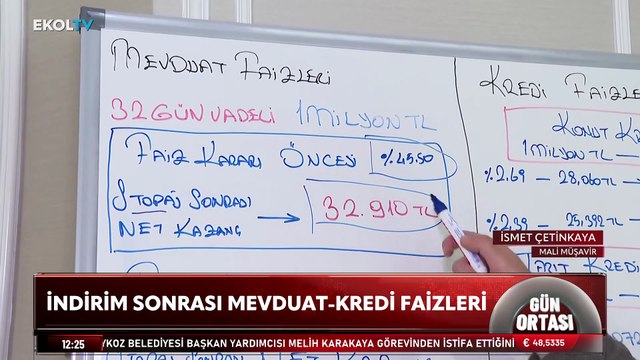 EKOLTV
MEVDUAT FAİZLERİ
32 GÜN VADELİ 1 MİLYON TL
FAİZ KARARI ÖNCESİ %45.50
STOPAJ SONRASI
NET KAZANÇ → 32.910 TL
KREDİ FAİZLE
KONUT K
1 MİLYON TL
%2.69 - 28,060 TL -
%2.39 - 25,392 TL -
İSMET ÇETİNKAYA
MALİ MÜŞAVİR
İNDİRİM SONRASI MEVDUAT-KREDİ FAİZLERİ
GÜN
ORTASI
12:25 /KOZ BELEDİYESİ BAŞKAN YARDIMCISI MELİH KARAKAYA GÖREVİNDEN İSTİFA ETTİĞİNİ € 48,5335